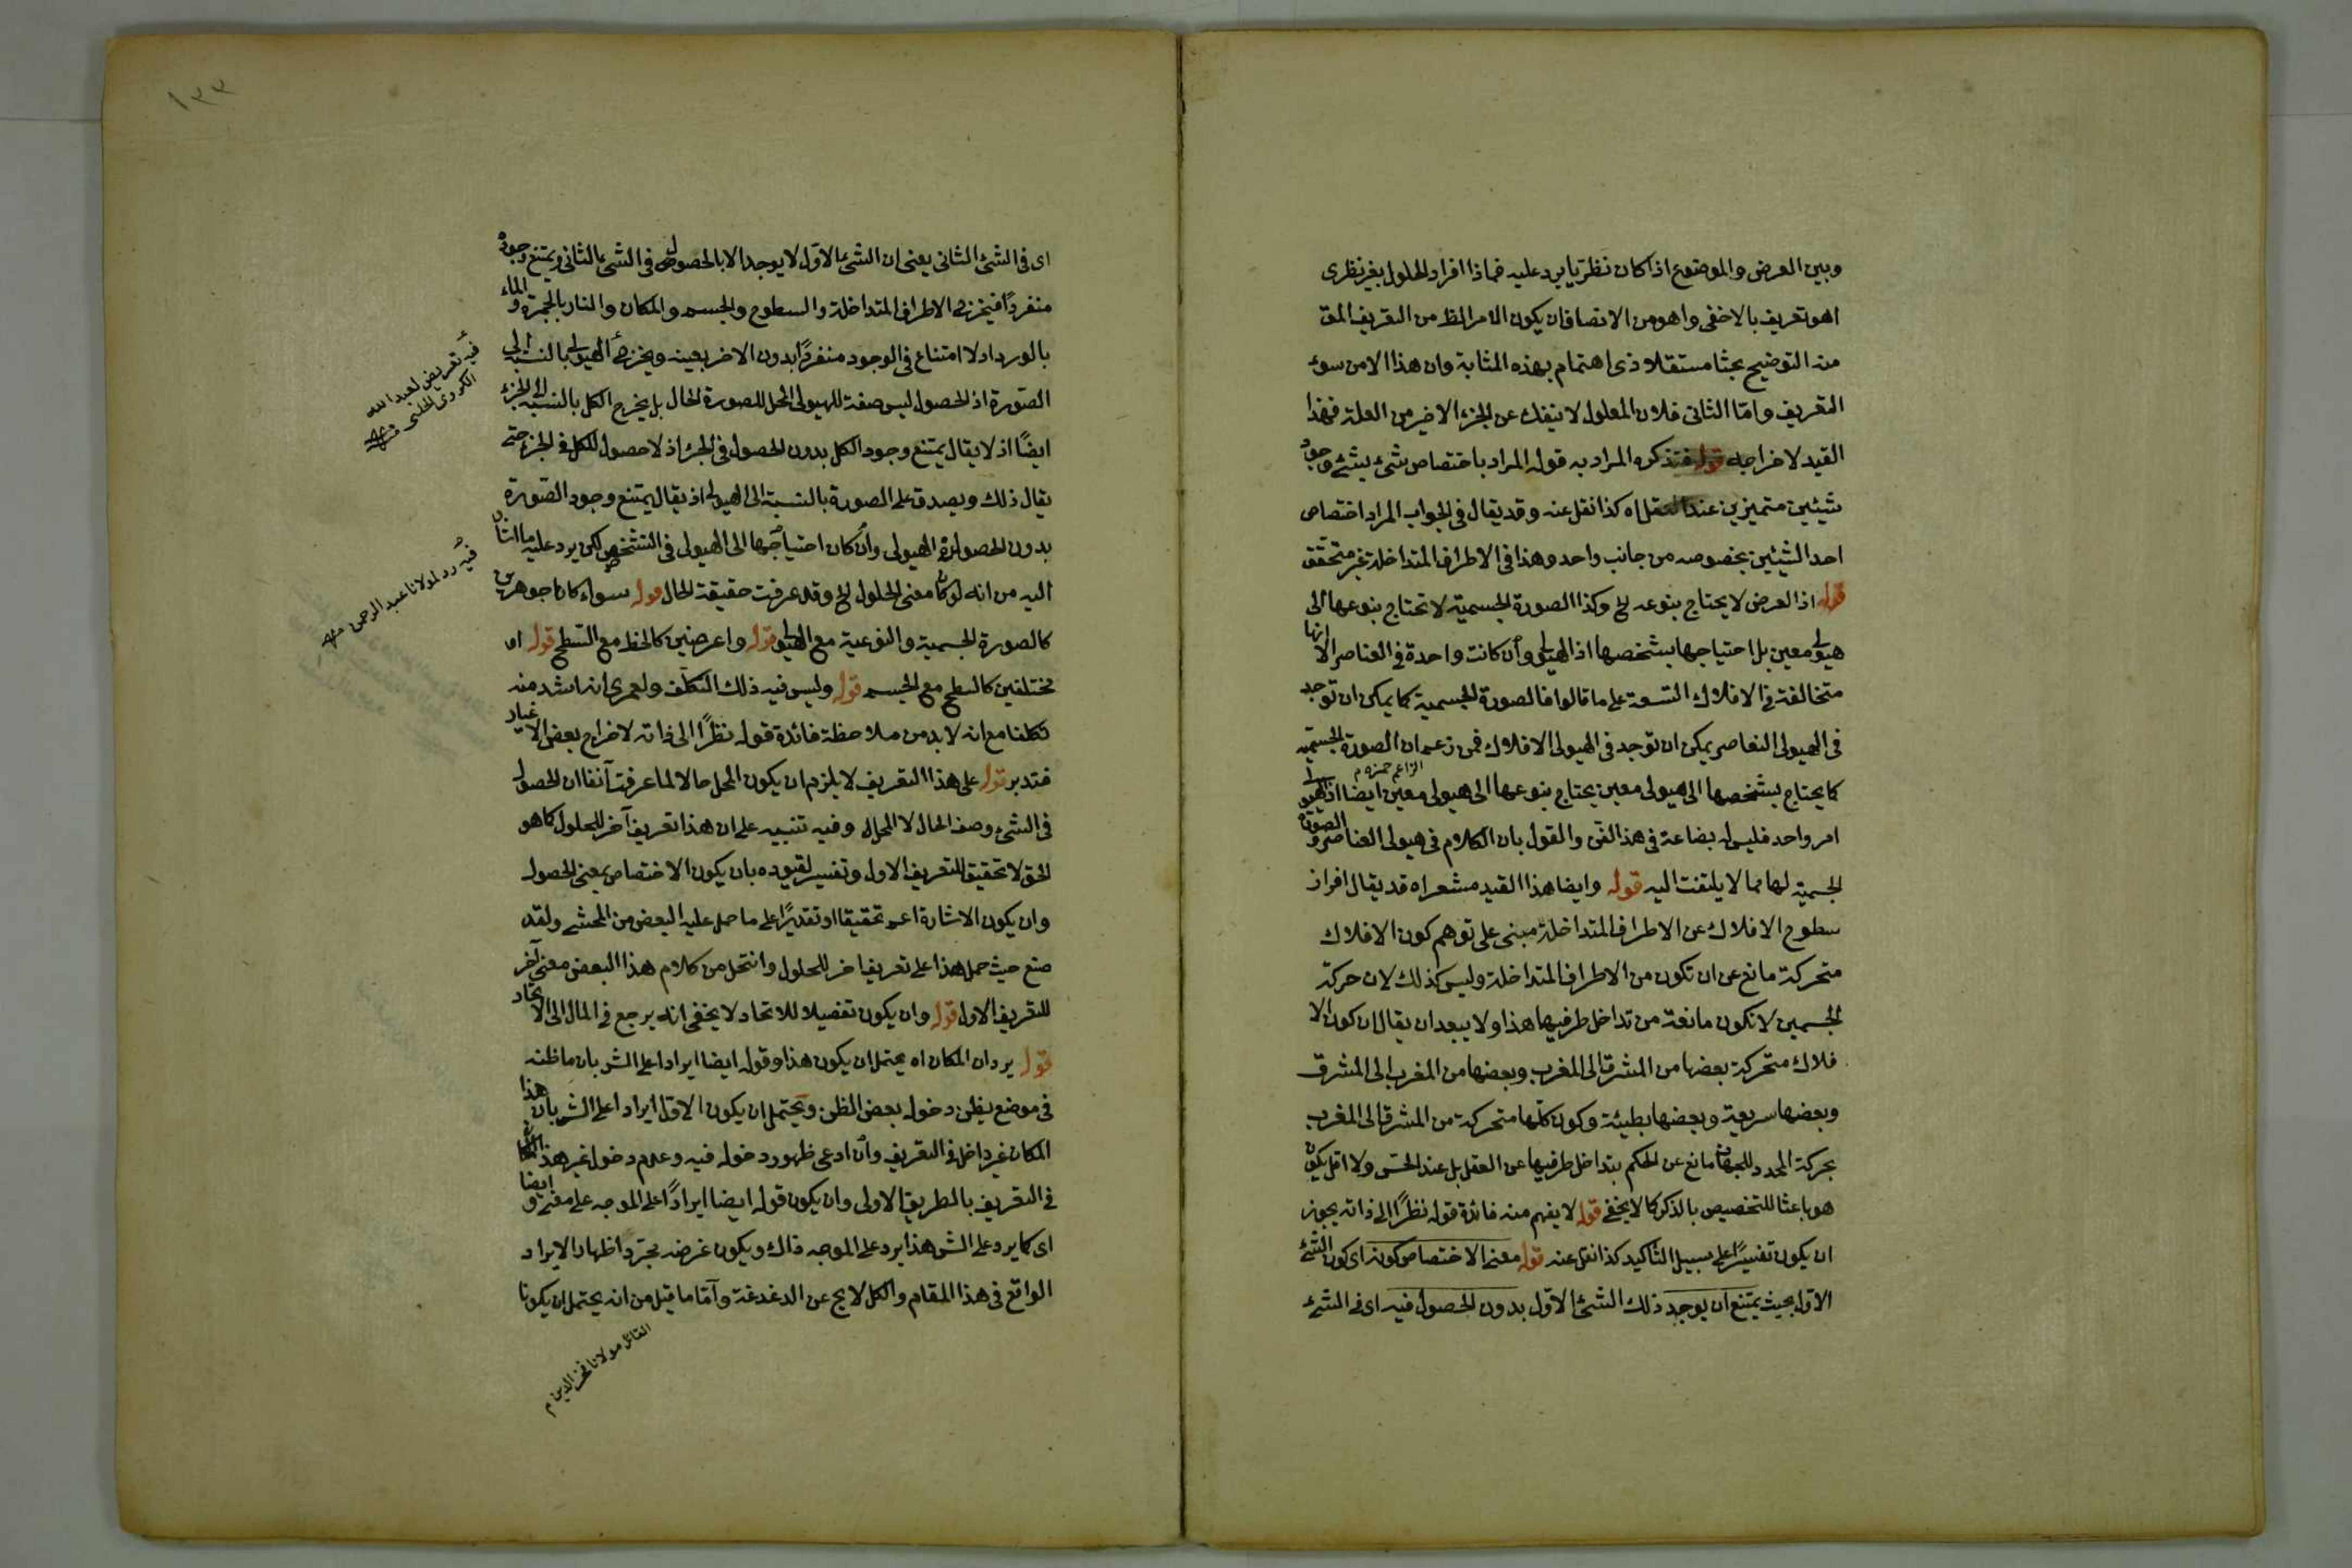 وبين العرض والموضوع اذا كان نظريا يرد عليه فماذا افراد الحلول بغير نظرى
اهو تعريف بالاخفى واهو من الانصاف ان يكون الامر الظ من التعريف المق
منه التوضيح بحثا مستقلا ذى اهتمام بهذه المثابة وان هذا الا من سوء
التعريف واما الثانى فلان المعلول لا ينفك عن الجزء الاخير من العلة فهذا
القيد لاخراجه قوله فتذكره المراد به قوله المراد باختصاص شئ بشئ وجود
شيئين متميزين عند العقل اه كذا نقل عنه وقد يقال فى الجواب المراد اختصاص
احد الشيئين بخصوصه من جانب واحد وهذا فى الاطراف المتداخلة غير متحقق
قوله اذ العرض لا يحتاج بنوعه الخ وكذا الصورة الجسمية لا تحتاج بنوعها الى
هيولى معين بل احتياجها بشخصها اذ الهيولى وان كانت واحدة فى العناصر الا انها
متخالفة فى الافلاك التسعة على ما قالوا فالصورة الجسمية كما يمكن ان توجد
فى الهيولى العناصر يمكن ان توجد فى الهيولى الافلاك فمن زعم ان الصورة الجسمية
الزاعم حمزه م
كما يحتاج بشخصها الى هيولى معين يحتاج بنوعها الى هيولى معين ايضا اذ الهيولى
امر واحد فليس له بضاعة فى هذا الفن والقول بان الكلام فى هيولى العناصر والصورة
الجسمية لها مما لا يلتفت اليه قوله وايضا هذا القيد مشعر اه قد يقال افراز
سطوح الافلاك عن الاطراف المتداخلة مبنى على توهم كون الافلاك
متحركة مانع عن ان تكون من الاطراف المتداخلة وليس كذلك لان حركة
الجسمين لا تكون مانعة من تداخل طرفيها هذا ولا يبعد ان يقال ان كون الا
فلاك متحركة بعضها من المشرق الى المغرب وبعضها من المغرب الى المشرق
وبعضها سريعة وبعضها بطيئة وكون كلها متحركة من المشرق الى المغرب
بحركة المحدد للجهات مانع عن الحكم بتداخل طرفيها عن العقل بل عند الحس ولا اقل يكون
هو باعثا للتخصيص بالذكر كما لا يخفى قوله لا يفهم منه فائدة قوله نظرا الى ذاته يجوز
ان يكون تفسيرا على سبيل التأكيد كذا نقل عنه قوله معنى الاختصاص كونه اى كون الشئ
الاول بحيث يمتنع ان يوجد ذلك الشئ الاول بدون الحصول فيه اى فى الشئ
١٣٣
اى فى الشئ الثانى يعنى ان الشئ الاول لا يوجد الا بالحصول فى الشئ الثانى ويمتنع وجوده
منفردا فيخرج الاطراف المتداخلة والسطوح والجسم والمكان والنار بالجمرة والماء
بالورد اذ لا امتناع فى الوجود منفردا بدون الاخر بعينه ويخرج الهيولى بالنسبة الى
الصورة اذ الحصول ليس صفة للهيولى المحل للصورة الحال بل يخرج الكل بالنسبة الى الجزء
ايضا اذ لا يقال يمتنع وجود الكل بدون الحصول فى الجزء اذ لا حصول للكل فى الجزء حتى
يقال ذلك ويصدق على الصورة بالنسبة الى الهيولى اذ يقال يمتنع وجود الصورة
بدون الحصول فى الهيولى وان كان احتياجها الى الهيولى فى التشخص لكن يرد عليه ما اشار
اليه من انه لو كان معنى الحلول الخ وقد عرفت حقيقة الحال قوله سواء كانا جوهرين
كالصورة الجسمية والنوعية مع الهيولى قوله واعرضين كالخط مع السطح قوله او
مختلفين كالسطح مع الجسم قوله وليس فيه ذلك التكلف ولعمرى انه اشد منه
تكلفا مع انه لا بد من ملاحظة فائدة قوله نظرا الى ذاته لاخراج بعض الاغيار
فتدبر قوله على هذا التعريف لا يلزم ان يكون المحل حالا لما عرفت آنفا ان الحصول
فى الشئ وصف الحال لا المحل وفيه تنبيه على ان هذا تعريف آخر للحلول كما هو
الحق لا تحقيق للتعريف الاول وتفسير لقيوده بان يكون الاختصاص بمعنى الحصول
وان يكون الاشارة اعم تحقيقا او تقديرا على ما حمل عليه البعض من المحشى ولقد
صنع حيث حمل هذا على تعريف اخر للحلول وانتحل من كلام هذا البعض معنى آخر
للتعريف الاول قوله وان يكون تفصيلا للاتحاد لا يخفى انه يرجع فى المال الى الاتحاد
قوله يرد ان المكان اه يحتمل ان يكون هذا وقوله ايضا ايرادا على الش بان ما ظنه
فى موضع يظن دخوله بعض الظن ويحتمل ان يكون الاول ايرادا على الش بان هذا
المكان غير داخل فى التعريف وان ادعى ظهور دخوله فيه وعدم دخول غير هذا المكان
فى التعريف بالطريق الاولى وان يكون قوله ايضا ايرادا على الموجه على معنى وايضا
اى كما يرد على الش هذا يرد على الموجه ذاك ويكون غرضه مجرد اظهار الايراد
الواقع فى هذا المقام والكل لا يخ عن الدغدغة واما ما قيل من انه يحتمل ان يكونا
فيه تعريض لعبد الله
الكردى الخلخى منه
فيه رد لمولانا عبد الرحمن منه
القائل مولانا فخر الدين م